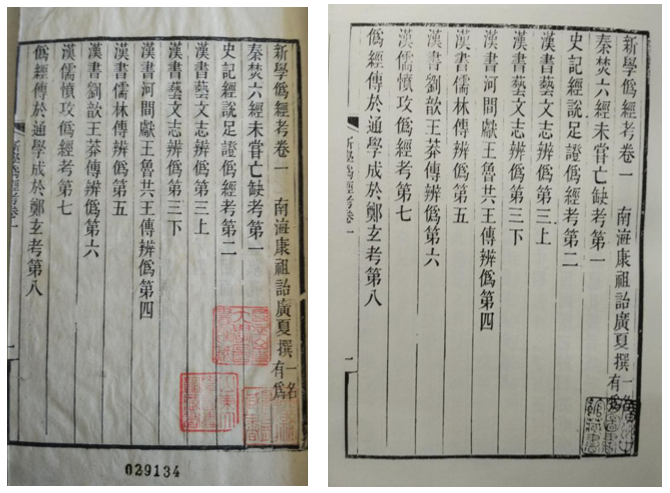 新學僞經考卷一 南海康祖詒廣夏撰一名有爲
秦焚六經未嘗亡缺考第一
史記經說足證僞經考第二
漢書藝文志辨僞第三上
漢書藝文志辨僞第三下
漢書河間獻王魯共王傳辨僞第四
漢書儒林傳辨僞第五
漢書劉歆王莽傳辨僞第六
漢儒憤攻僞經考第七
僞經傳於通學成於鄭玄考第八
新學僞經考卷一
一
029134
新學僞經考卷一 南海康祖詒廣夏撰一名有爲
秦焚六經未嘗亡缺考第一
史記經說足證僞經考第二
漢書藝文志辨僞第三上
漢書藝文志辨僞第三下
漢書河間獻王魯共王傳辨僞第四
漢書儒林傳辨僞第五
漢書劉歆王莽傳辨僞第六
漢儒憤攻僞經考第七
僞經傳於通學成於鄭玄考第八
新學僞經考卷一
一